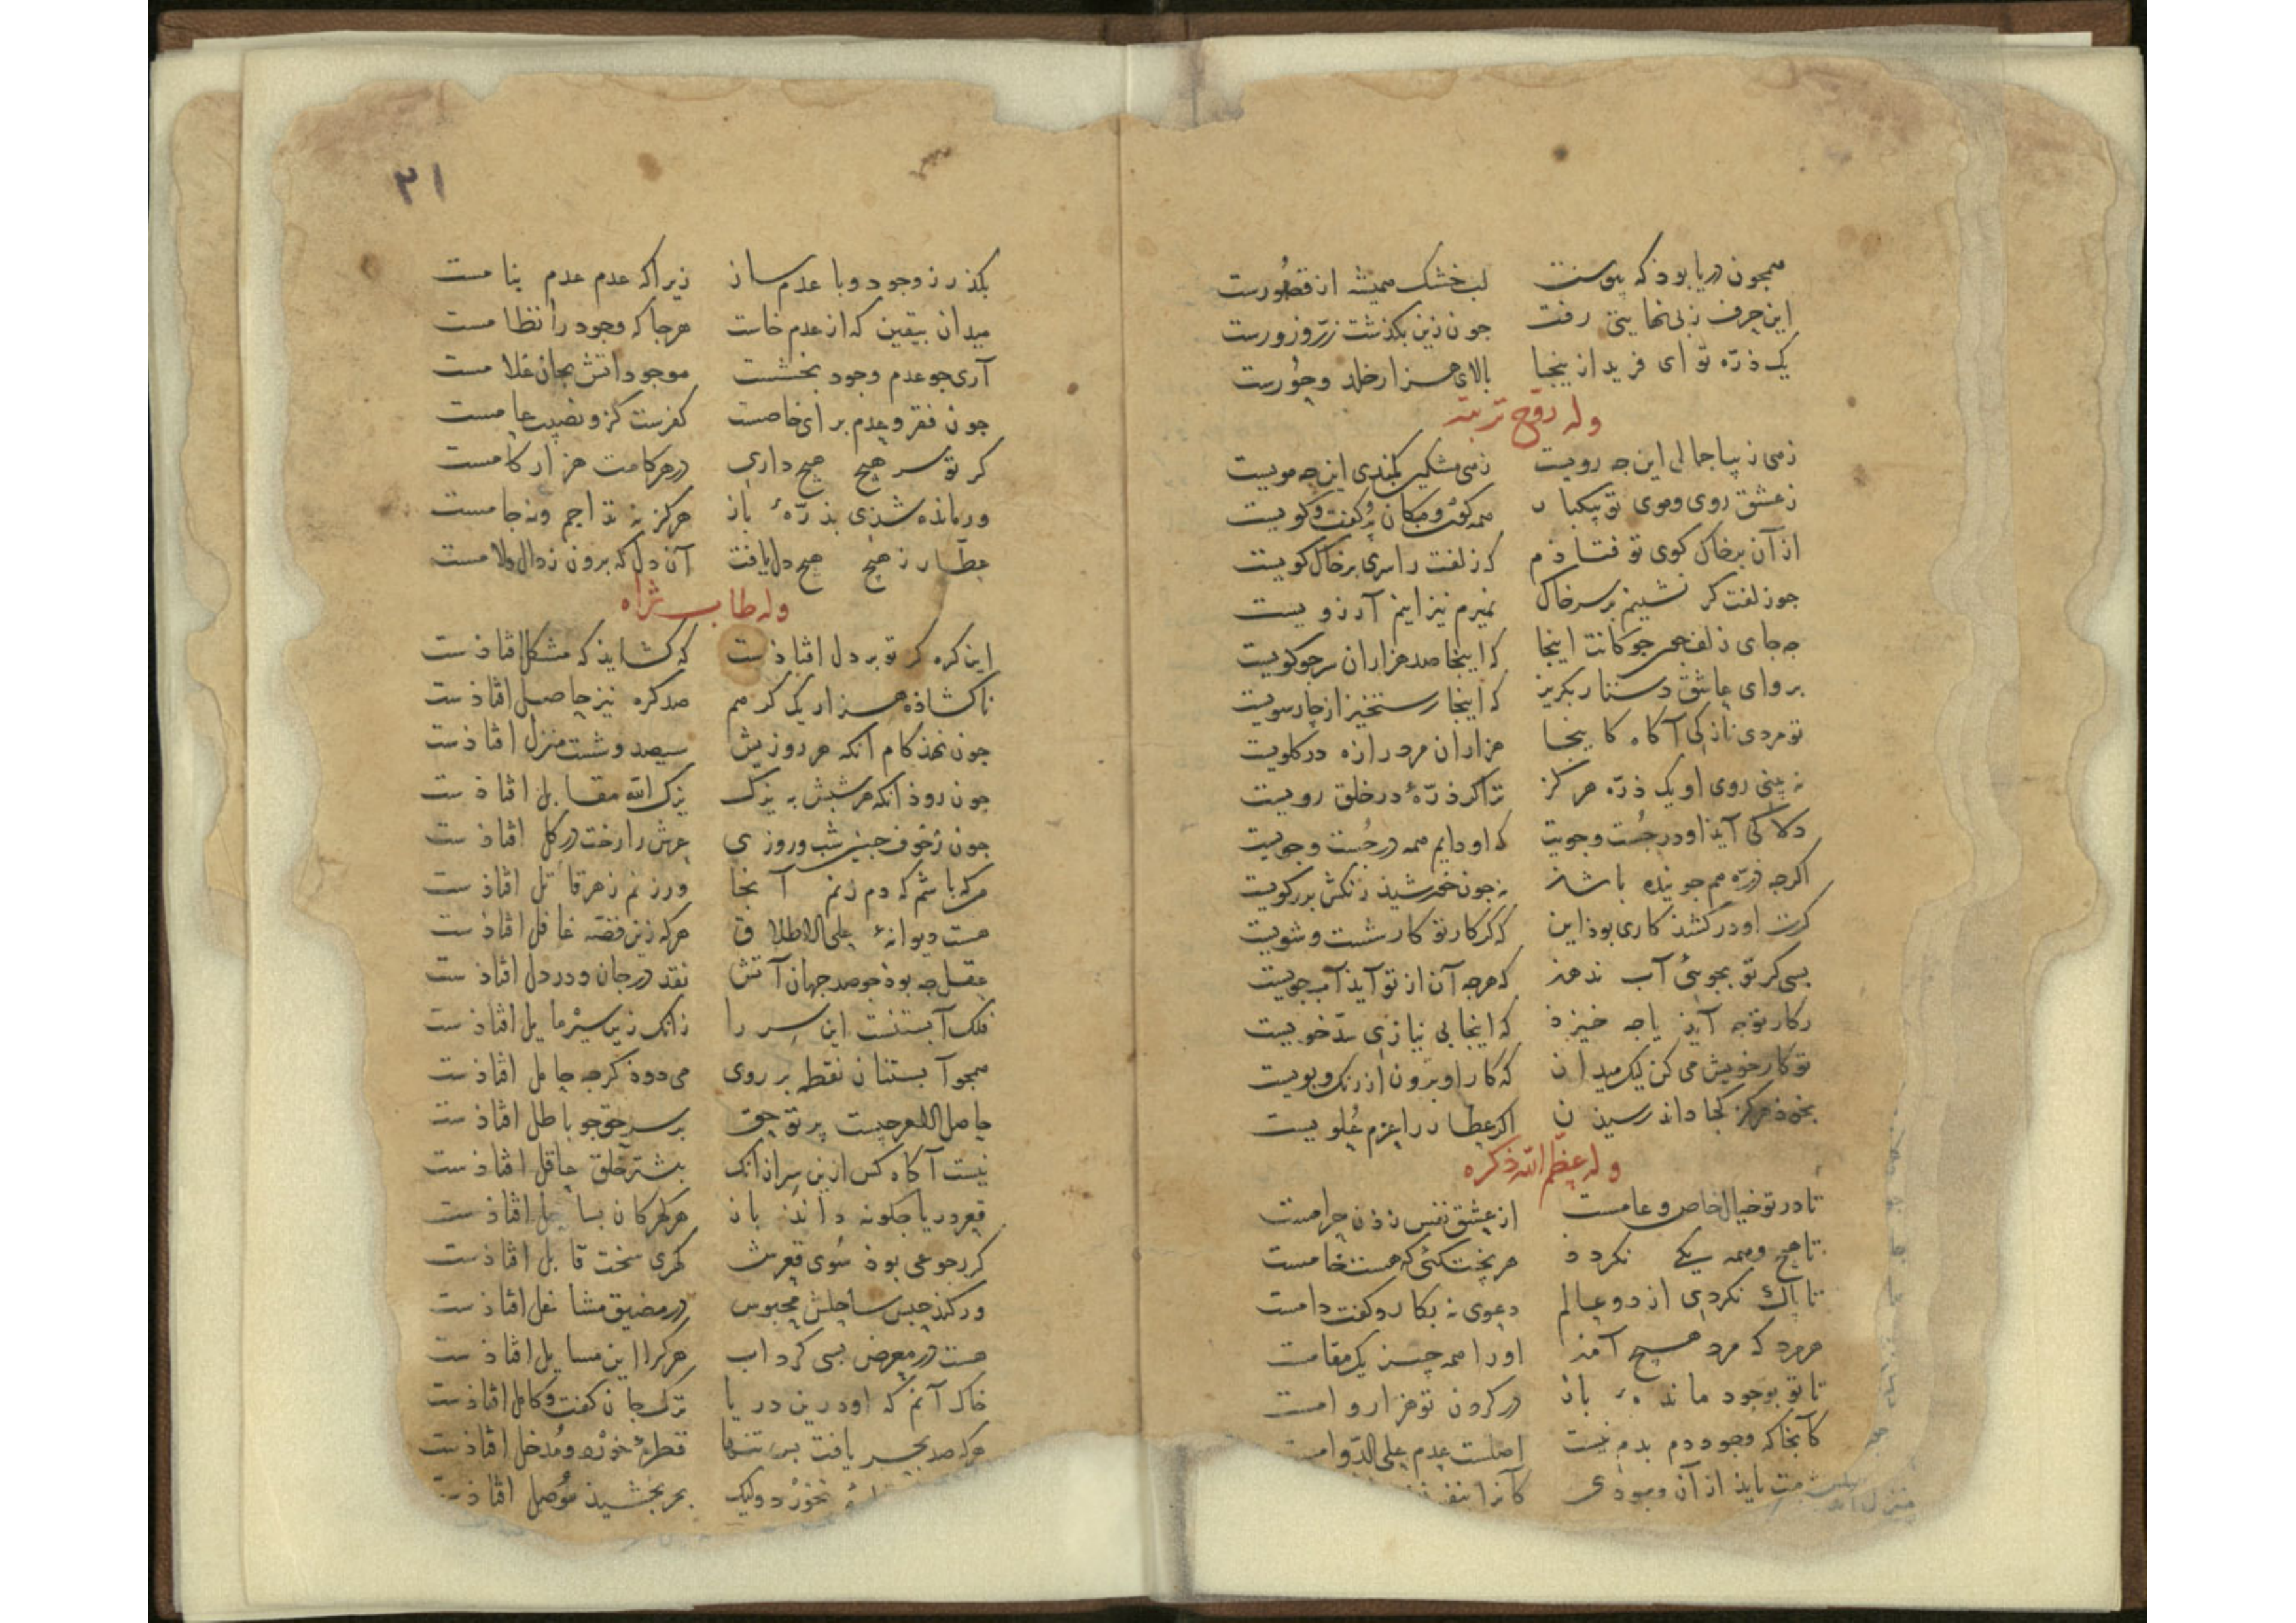 همچون دریا بوذ که پیوست لب خشک همیشه از قصورست
این حرف ز بی نهایتی رفت جون زین بکذشت زرّ و زورست
یک ذرّه تو ای فرید ازینجا بالای هزار خلد و حورست
وله روّح تربته
زهی زیبا جمالی این جه رویست زهی مشکین کمندی این جه مویست
ز عشق روی و موی تو بیکبار همه کون و مکان بر کفت و کویست
از آن بر خاک کوی تو فتاذم که زلفت را سری بر خاک کویست
جو زلفت کر نشینم بر سر خاک نمیرم نیز اینم آرزویست
جه جای زلف جون جوکانت اینجا که اینجا صد هزاران سر جو کویست
برو ای عاشق دستار بکریز که اینجا رستخیز از چارسویست
تو مردی نازکی آکاه کاینجا هزاران مرد را زه در کلویست
نه بینی روی او یک ذرّه هرکز ترا کر ذرّهٔ در خلق رویست
دلا کی آید او در جست و جویت که او دایم همه در جست و جویست
اکرجه ذرّه هم جوینده باشذ نه جون خورشید رنکش بر رکویست
کرت او در کشذ کاری بوذ این که کر کار تو کار شست و شویست
بسی کر تو بجویی آب ندهذ که هرجه آن از تو آیذ آب جویست
ز کار تو جه آیذ یا جه خیزذ که اینجا بی نیازی سدّ خویست
تو کار خویش می کن لیک میدان که کار او برون از رنک و بویست
بخوذ هرکز کجا داند رسیذن اکر عطار را عزم علویست
وله عظّم الله ذکره
تا در تو خیال خاص و عامست از عشق نفس زذن حرامست
تا هیچ و همه یکی نکردذ هر پختکئی که هست خامست
تا پاک نکردی از دو عالم دعوی نه بکار و کفت دامست
هر مرد که مرد هیچ آمذ او را همه چیز یک مقامست
تا تو بوجود ماندهٔ باز در کردن تو هزار وامست
کآنجا که وجود دم بدم نیست اصلست عدم علی الدّوامست
باید از آن وجودی کآنرا
۳۱
بکذر ز وجود و با عدم ساز زیراک عدم عدم بنامست
میدان بیقین که از عدم خاست هرجا که وجود را نظامست
آری جو عدم وجود بخشست موجوداتش بجان غلامست
جون فقر و عدم برای خاصست کفرست کزو نصیب عامست
کر تو سر هیچ هیچ داری در هر کامت هزار کامست
ور مانده شذی بذرّهٔ باز هرکز نه ترا جم و نه جامست
عطّار ز هیچ هیچ دل یافت آن دل که برون ز دال و لامست
وله طاب ثراه
این کره کز تو بر دل افتاذست که کشایذ که مشکل افتاذست
ناکشاذه هزار یک کره هم صد کره نیز حاصل افتاذست
جون نهذ کام آنکه هر روزیش سیصد و شست منزل افتاذست
جون روذ آنکه هر شبش به یزک یزک الله مقابل افتاذست
جون ز خوف جنین شب و روزی عرش را رخت در کل افتاذست
من که باشم که دم زنم آنجا ور زنم زهر قاتل افتاذست
هست دیوانهٔ علی الاطلاق هرکه زین قصّه غافل افتاذست
عقل جه بوذ جو صد جهان آتش نقد در جان و در دل افتاذست
فلک آبستنست این سر را زانک زین سیر مایل افتاذست
همجو آبستنان نقطه بر روی می دوذ کرجه حامل افتاذست
حاصل الامر چیست پرتو حق بر سر حق جو باطل افتاذست
نیست آکاه کس ازین سر از انک بیشتر خلق عاقل افتاذست
قعر دریا جکونه داند باز هر کرا کان بساحل افتاذست
کر رجوعی بوذ سوی قعرش کهری سخت قابل افتاذست
ور کند حبس ساحلش محبوس در مضیق مشاغل افتاذست
هست در معرض بسی کرداب هرکرا این مسایل افتاذست
خاک آنم که او درین دریا ترک جان کفت و کامل افتاذست
هرکه صد بحر یافت بس تنها قطرهٔ خورد و مدخل افتاذست
نخورد ولیک بحر بخشید موصل افتاذست